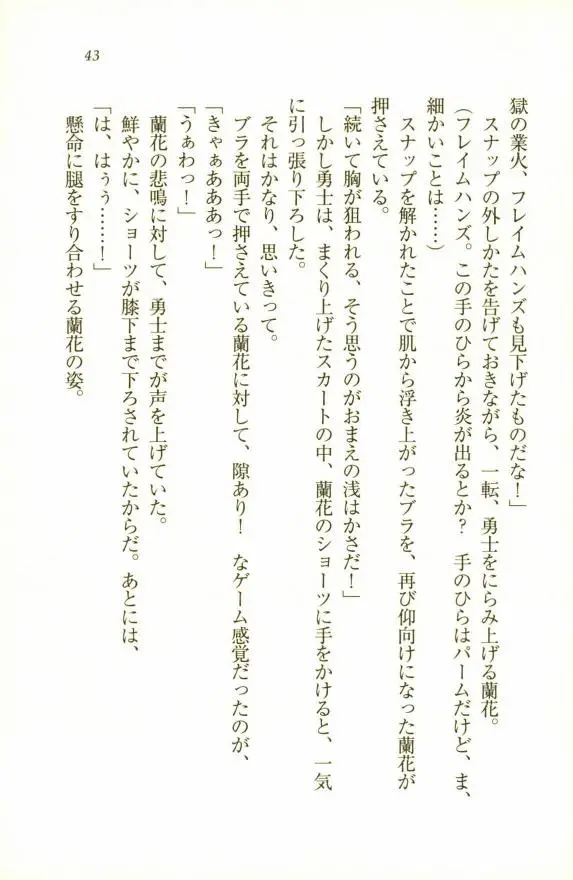 43
獄の業火、フレイムハンズも見下げたものだな！」
スナップの外しかたを告げておきながら、一転、勇士をにらみ上げる蘭花。
（フレイムハンズ。この手のひらから炎が出るとか？　手のひらはパームだけど、ま、
細かいことは……）
スナップを解かれたことで肌から浮き上がったブラを、再び仰向けになった蘭花が
押さえている。
「続いて胸が狙われる、そう思うのがおまえの浅はかさだ！」
しかし勇士は、まくり上げたスカートの中、蘭花のショーツに手をかけると、一気
に引っ張り下ろした。
それはかなり、思いきって。
ブラを両手で押さえている蘭花に対して、隙あり！　なゲーム感覚だったのが、
「きゃぁあああっ！」
「うぁわっ！」
蘭花の悲鳴に対して、勇士までが声を上げていた。
鮮やかに、ショーツが膝下まで下ろされていたからだ。あとには、
「は、はぅぅ……！」
懸命に腿をすり合わせる蘭花の姿。